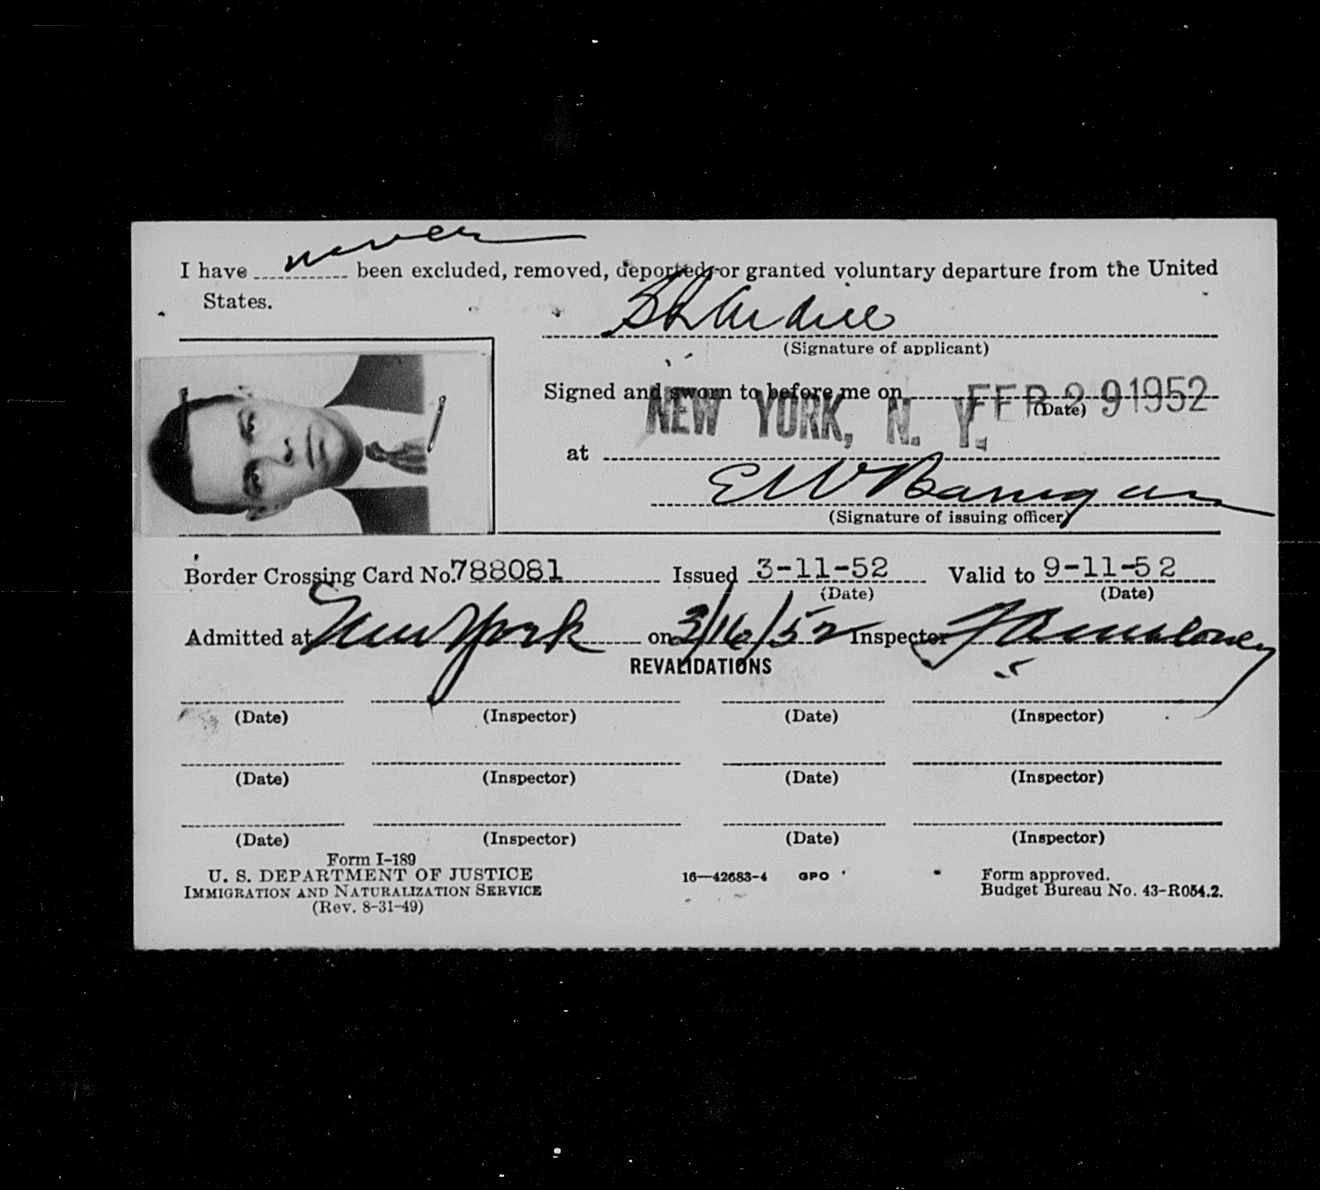 I have never been excluded, removed, deported, or granted voluntary departure from the United
States.
(Signature of applicant)
Signed and sworn to before me on FEB 29 1952
(Date)
at NEW YORK, N. Y.
E W
(Signature of issuing officer)
Border Crossing Card No. 788081 Issued 3-11-52 Valid to 9-11-52
(Date) (Date)
Admitted at New York on 3/16/52 Inspector
REVALIDATIONS
(Date) (Inspector) (Date) (Inspector)
(Date) (Inspector) (Date) (Inspector)
(Date) (Inspector) (Date) (Inspector)
Form I-189
U. S. DEPARTMENT OF JUSTICE
IMMIGRATION AND NATURALIZATION SERVICE
(Rev. 8-31-49)
16—42683-4 GPO
Form approved.
Budget Bureau No. 43-R054.2.